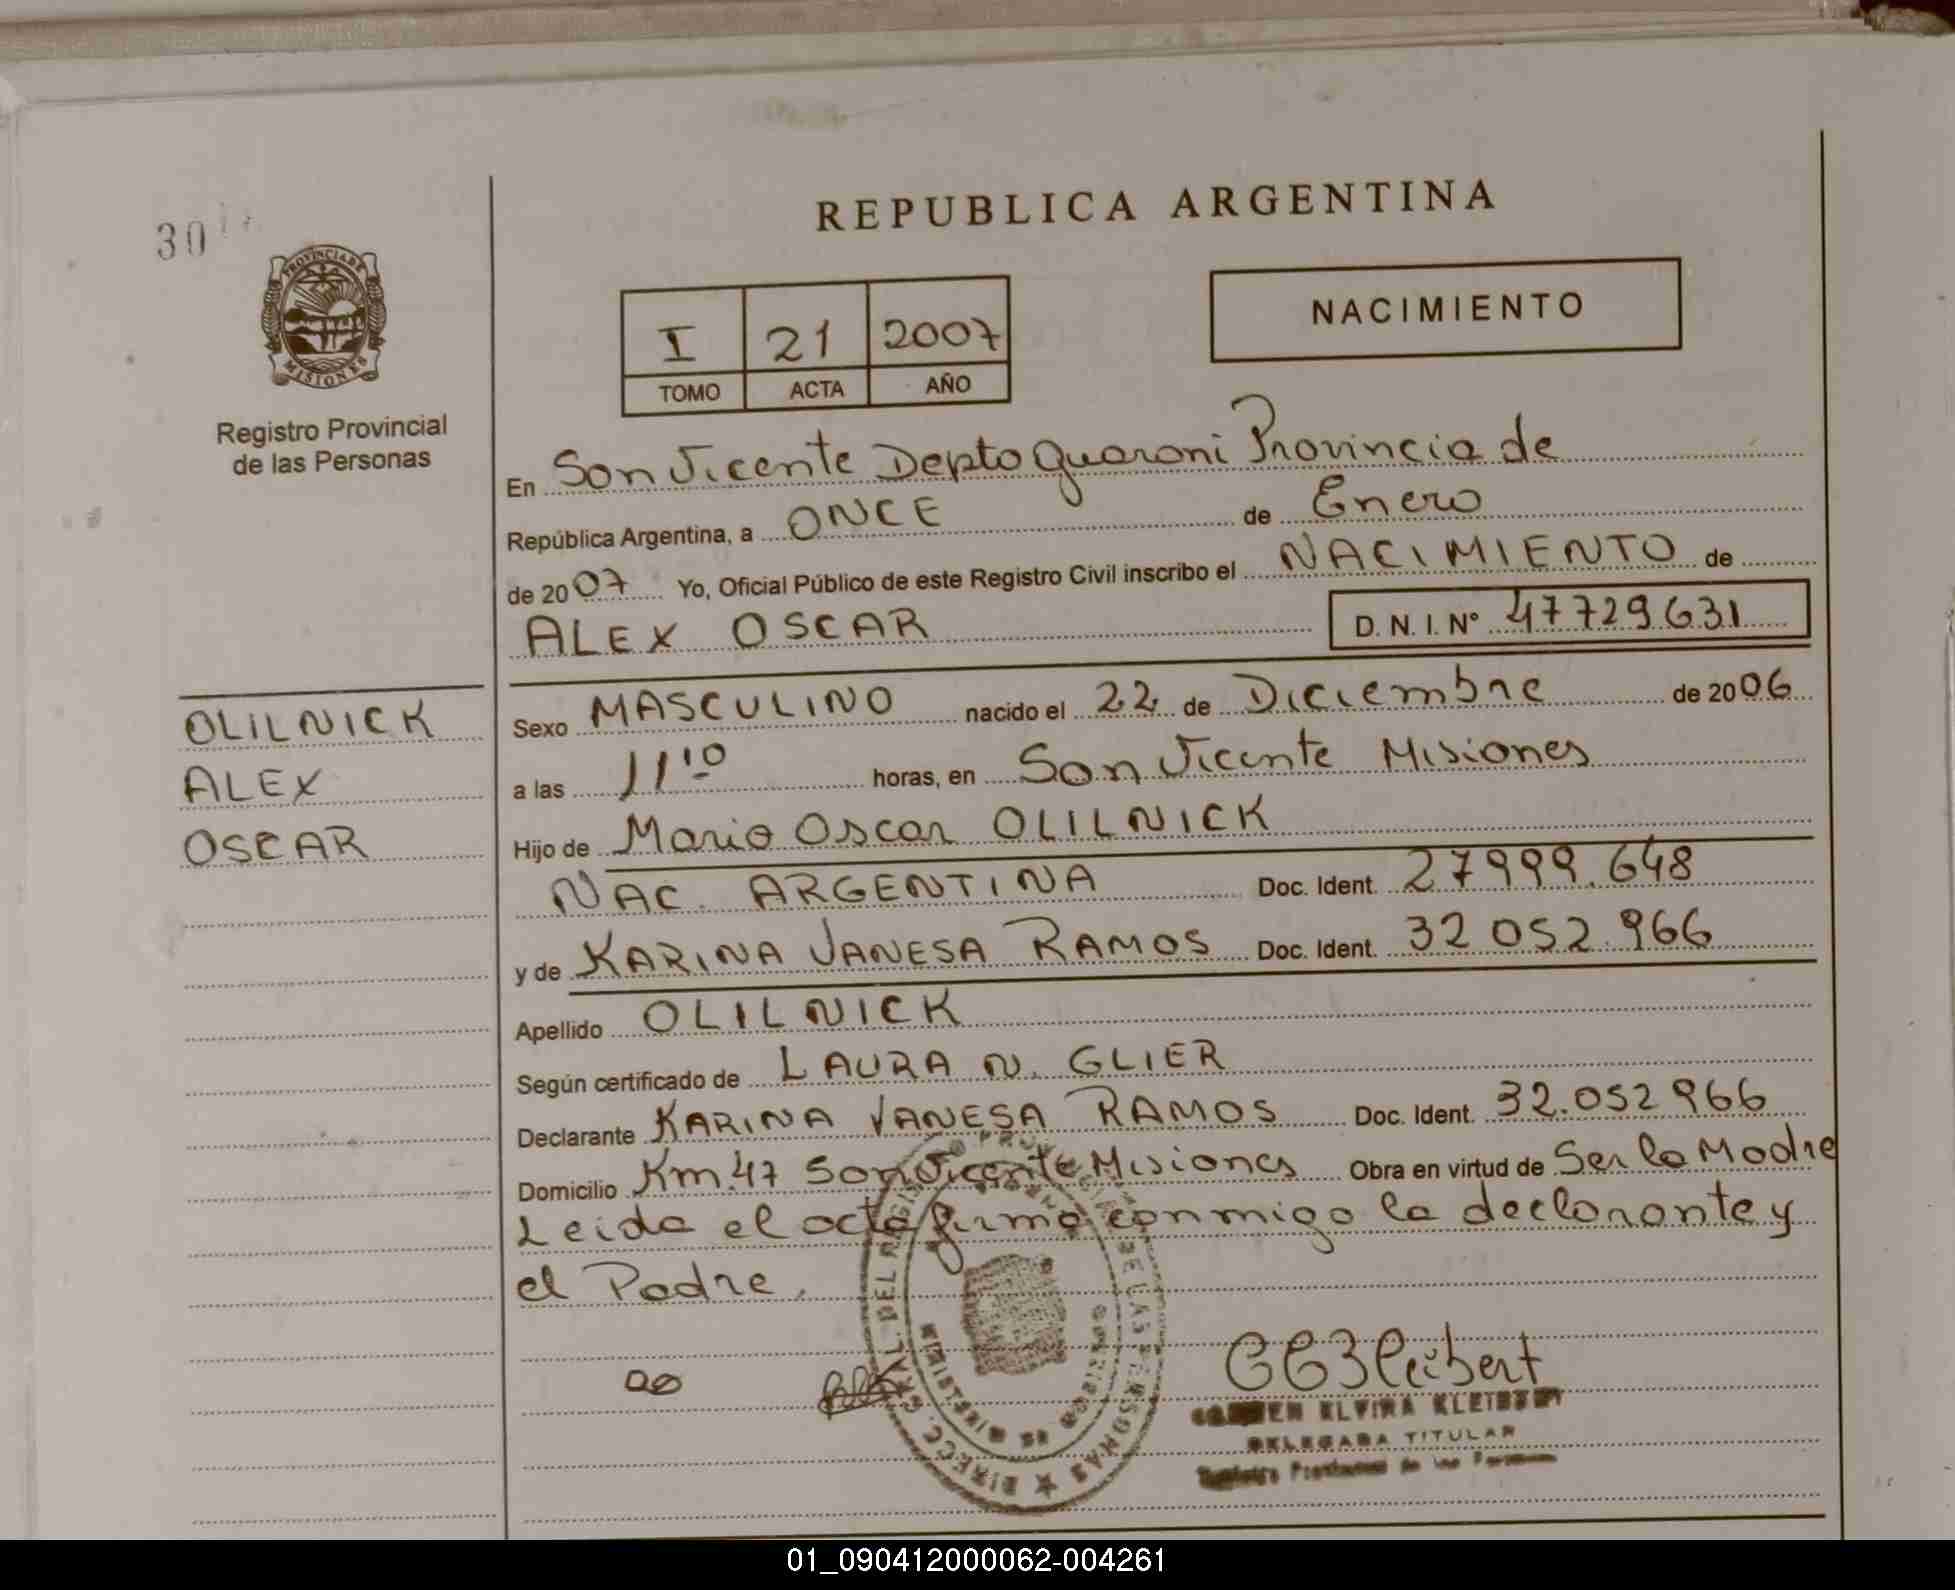 30
REPUBLICA ARGENTINA
PROVINCIA DE
MISIONES
Registro Provincial
de las Personas
I 21 2007
TOMO ACTA AÑO
NACIMIENTO
En San Vicente Depto Guarani Provincia de
República Argentina, a ONCE de Enero
de 2007 Yo, Oficial Público de este Registro Civil inscribo el NACIMIENTO de
ALEX OSCAR D. N. I. Nº 47729631
OLILNICK
ALEX
OSCAR
Sexo MASCULINO nacido el 22 de Diciembre de 2006
a las 11'10 horas, en San Vicente Misiones
Hijo de Mario Oscar OLILNICK
NAC. ARGENTINA Doc. Ident. 27999.648
y de KARINA VANESA RAMOS Doc. Ident. 32 052.966
Apellido OLILNICK
Según certificado de LAURA N. GLIER
Declarante KARINA VANESA RAMOS Doc. Ident. 32.052966
Domicilio Km.47 San Vicente Misiones Obra en virtud de Ser la Madre
Leida el acta firma conmigo la declarante y
el Padre.
DIRECC. GRAL. DEL REGISTRO PROVINCIAL DE LAS PERSONAS
MINISTERIO DE GOBIERNO
CARMEN ELVIRA KLEIBERT
DELEGADA TITULAR
Registro Provincial de las Personas
01_090412000062-004261